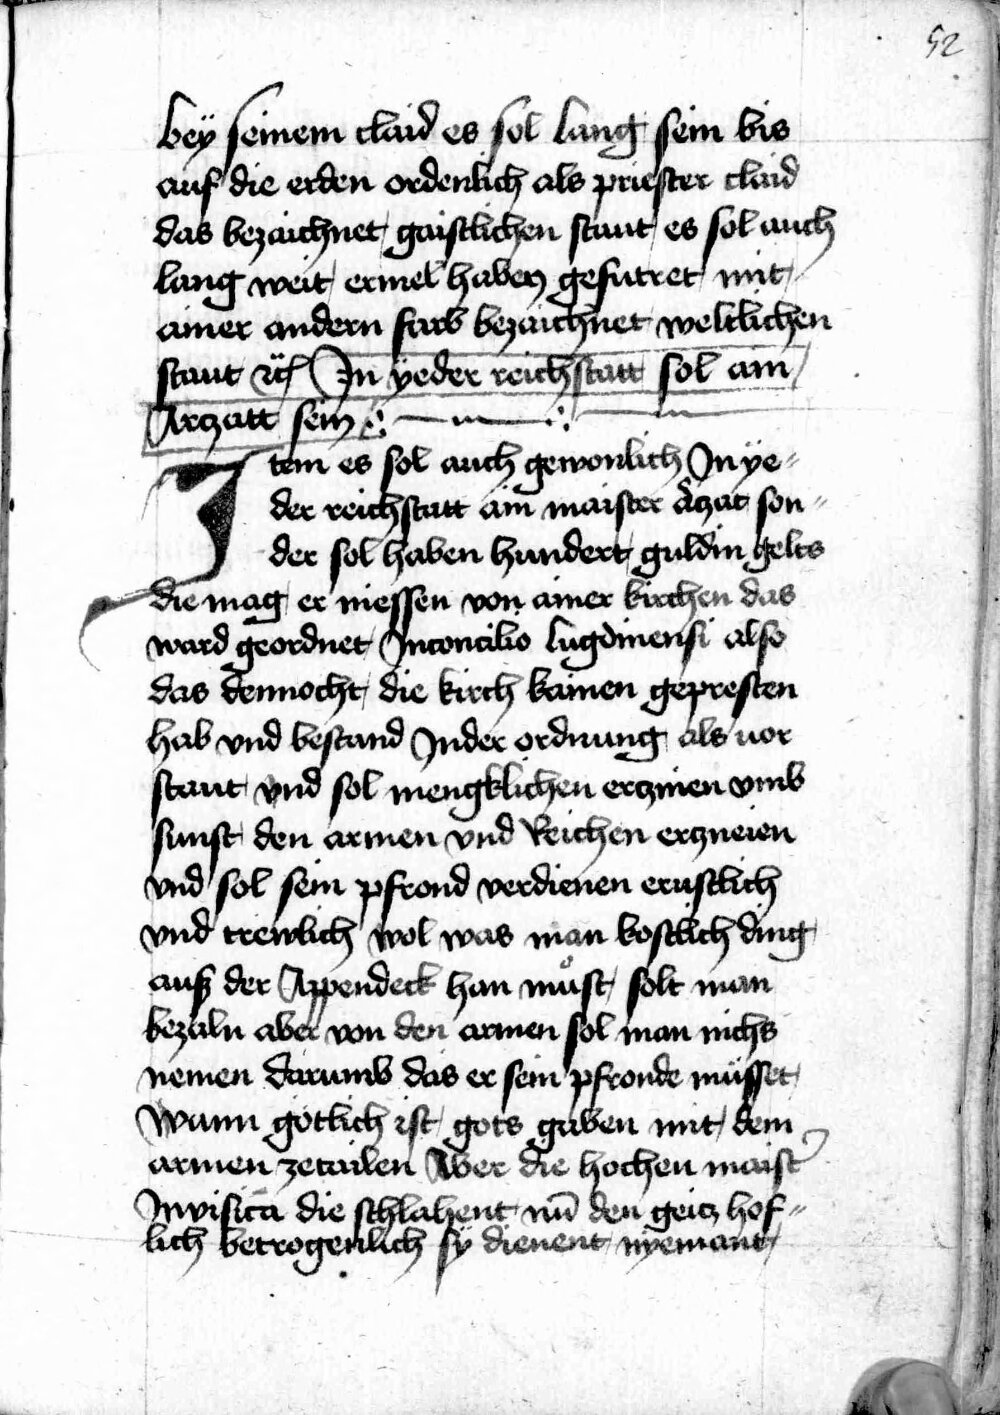 52
beÿ seinem claid es sol lang sein bis
auf die erden ordenlich als priester claid
das bezaichnet gaistlichen staut es sol auch
lang weit ermel haben gefutret mit
ainer andern farb bezaichnet weltlichen
staut ⁊c̈ In ÿeder reichstatt sol ain
Arczatt sein
Item es sol auch gewonlich In ÿe-
der reichstatt ain maister Arczat son-
der sol haben hundert guldin gelts
die mag er niessen von ainer kirchen das
ward geordnet In concilio lugdinensi also
das dennocht die kirch kainen gepresten
hab vnd bestand In der ordnung als uor
staut vnd sol mengklichen ercznien vmb
sunst den armen vnd Reichen erczneien
vnd sol sein pfrond verdienen ernstlich
vnd trewlich wol was man kostlich ding
auß der Appendeck han muͦst solt man
bezaln aber von den armen sol man nichs
nemen darumb das er sein pfronde nüsset
Wann götlich ist gots gaben mit dem
armen zetailen Aber die hochen maist̾
In visica die schlahent nu̅ den geicz hof-
lich betrogenlich sÿ dienent nÿemant